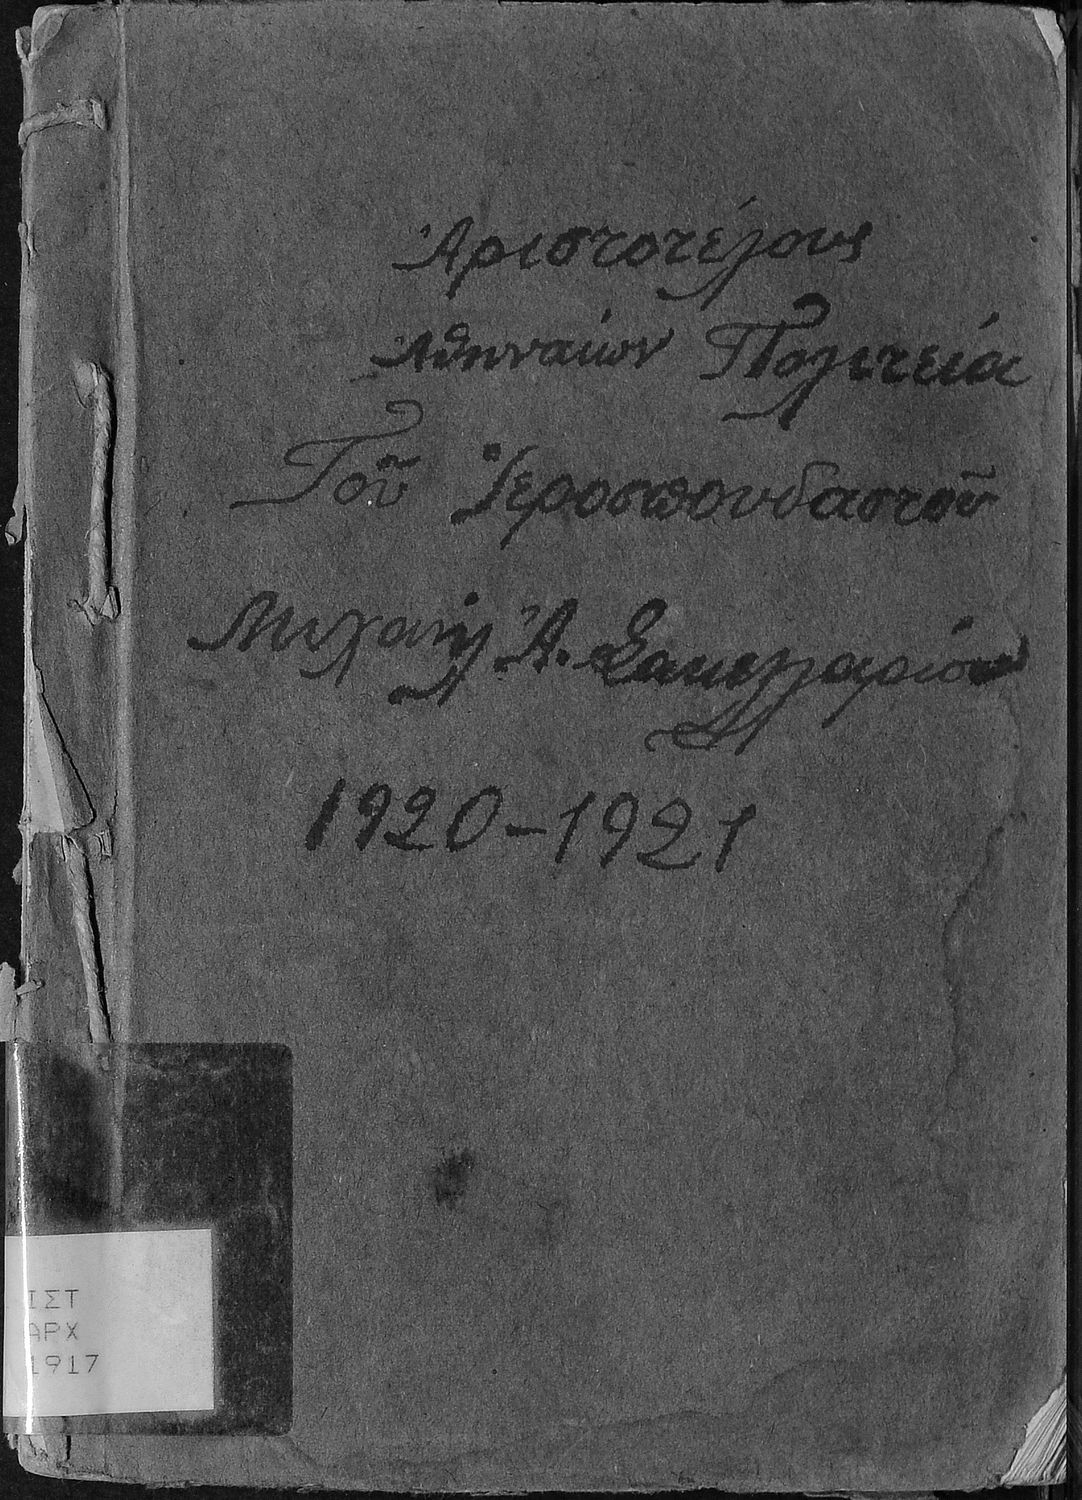 Ἀριστοτέλους
Ἀθηναίων Πολιτεία
Τοῦ Ἱεροσπουδαστοῦ
Μιχαὴλ Ἀ. Σακελλαρίου
1920-1921
ΙΣΤ
ΑΡΧ
1917